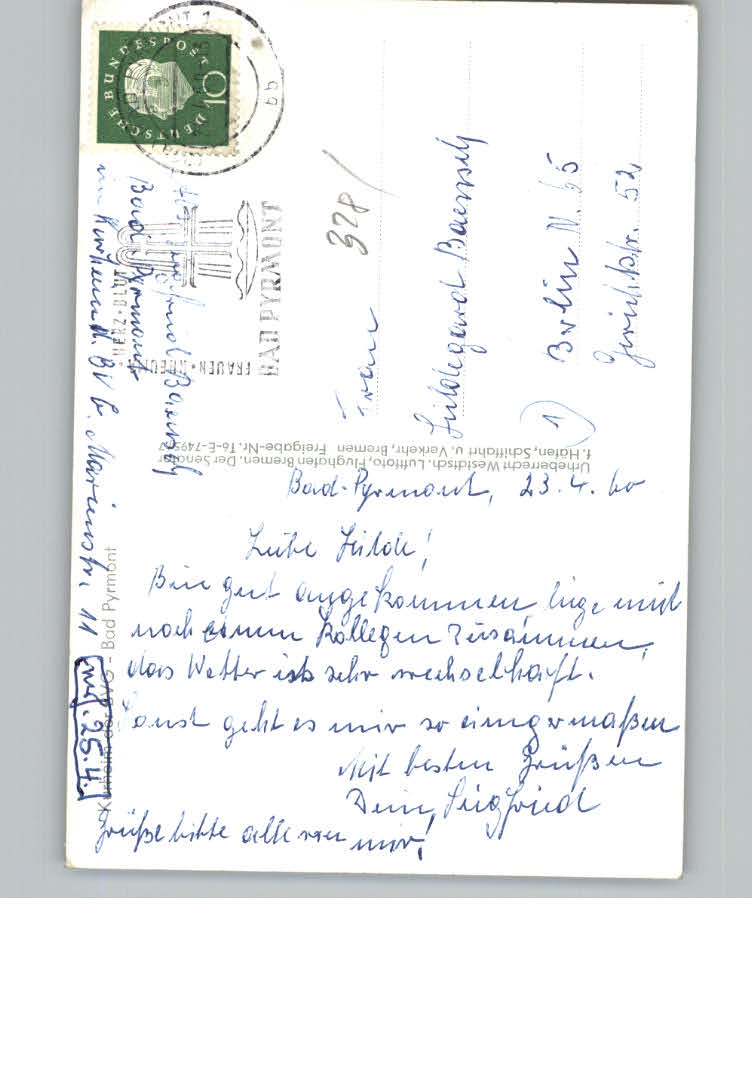 Bad-Pyrmont, 23.4.60
Liebe Hilde!
Bin gut angekommen, liege mit
noch einem Kollegen zusammen,
das Wetter ist sehr wechselhaft.
Sonst geht es mir so einigermaßen
Mit besten Grüßen
Dein, Siegfried
Grüße bitte alle von mir!
Frau
Hildegard Baensch
(1) Berlin N. 65
52
328/
Siegfried Baensch
Bad Pyrmont
im Kurheim d. BVG. Marienstr. 11
25.4.
Kurheim der BVG - Bad Pyrmont
Urheberrecht Westdtsch. Luftfoto, Flughafen Bremen. Der Senator
f. Häfen, Schiffahrt u. Verkehr, Bremen Freigabe-Nr. T6-E-7495/7
DEUTSCHE BUNDESPOST
10
BAD PYRMONT
HERZ·BLUT
FRAUEN·RHEUMA
bb